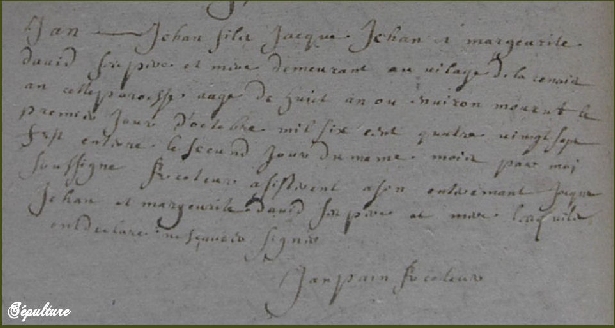 Jan Jehan fils Jacque Jehan et margeurite
david ses pere et mere demeurant au vilage de la
an cette paroisse aage de huict an ou environ mourut le
premier jour d'octobre mil six cent quatre vingt sept
fust enterre le second jour du meme mois par moi
soussigne Recteur asistoient a son enterement Jacque
Jehan et margeurite david ses pere et mere lesquels
ont declare ne scavoir signer
Jan pain Recteur
Sépulture